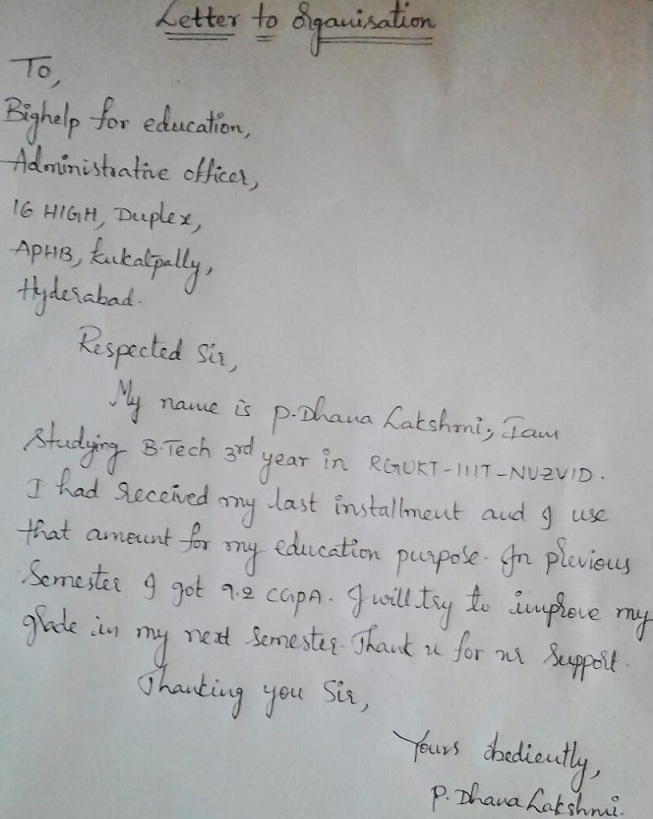 Letter to Organisation
To,
Bighelp for education,
Administrative officer,
16 HIGH, Duplex,
APHB, kukatpally,
Hyderabad.
Respected Sir,
My name is P.Dhana Lakshmi, Iam
Studying B.Tech 3rd year in RGUKT-IIIT-NUZVID.
I had received my last installment and I use
that amount for my education purpose. In previous
Semester I got 9.2 CGPA. I will try to improve my
grade in my next semester. Thank u for ur support.
Thanking you Sir,
Yours obediently,
P. Dhana Lakshmi.